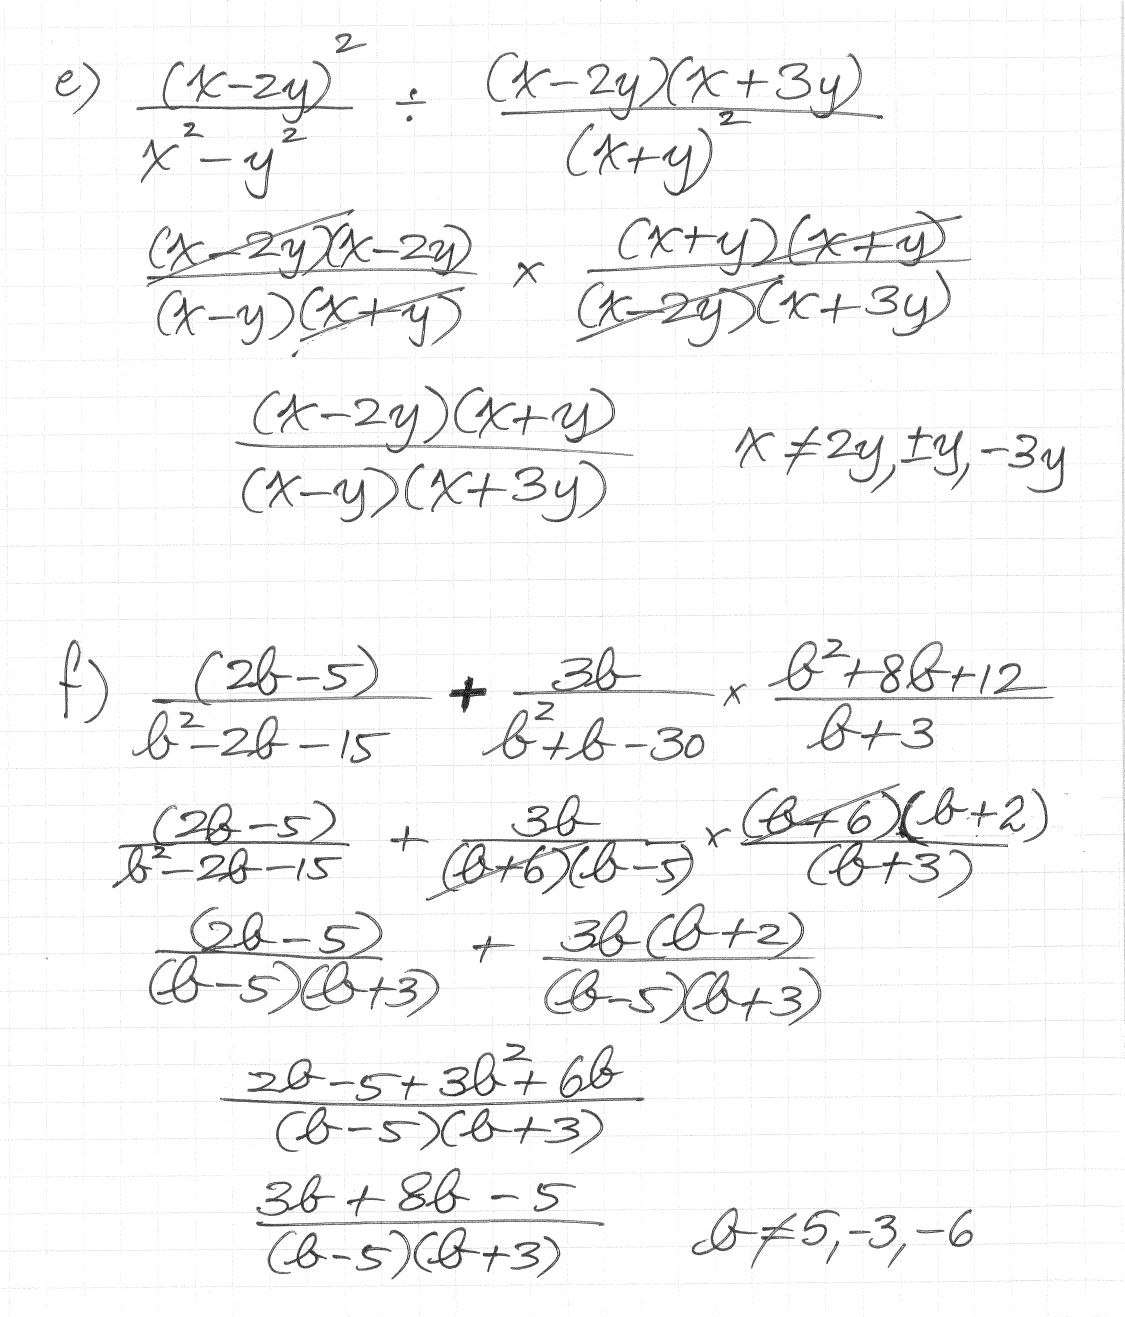 e) (x-2y)² / x²-y² ÷ (x-2y)(x+3y) / (x+y)²
(x-2y)(x-2y) / (x-y)(x+y) × (x+y)(x+y) / (x-2y)(x+3y)
(x-2y)(x+y) / (x-y)(x+3y) x≠2y, ±y, -3y
f) (2b-5) / b²-2b-15 + 3b / b²+b-30 × b²+8b+12 / b+3
(2b-5) / b²-2b-15 + 3b / (b+6)(b-5) × (b+6)(b+2) / (b+3)
(2b-5) / (b-5)(b+3) + 3b(b+2) / (b-5)(b+3)
2b-5+3b²+6b / (b-5)(b+3)
3b+8b-5 / (b-5)(b+3) b≠5, -3, -6